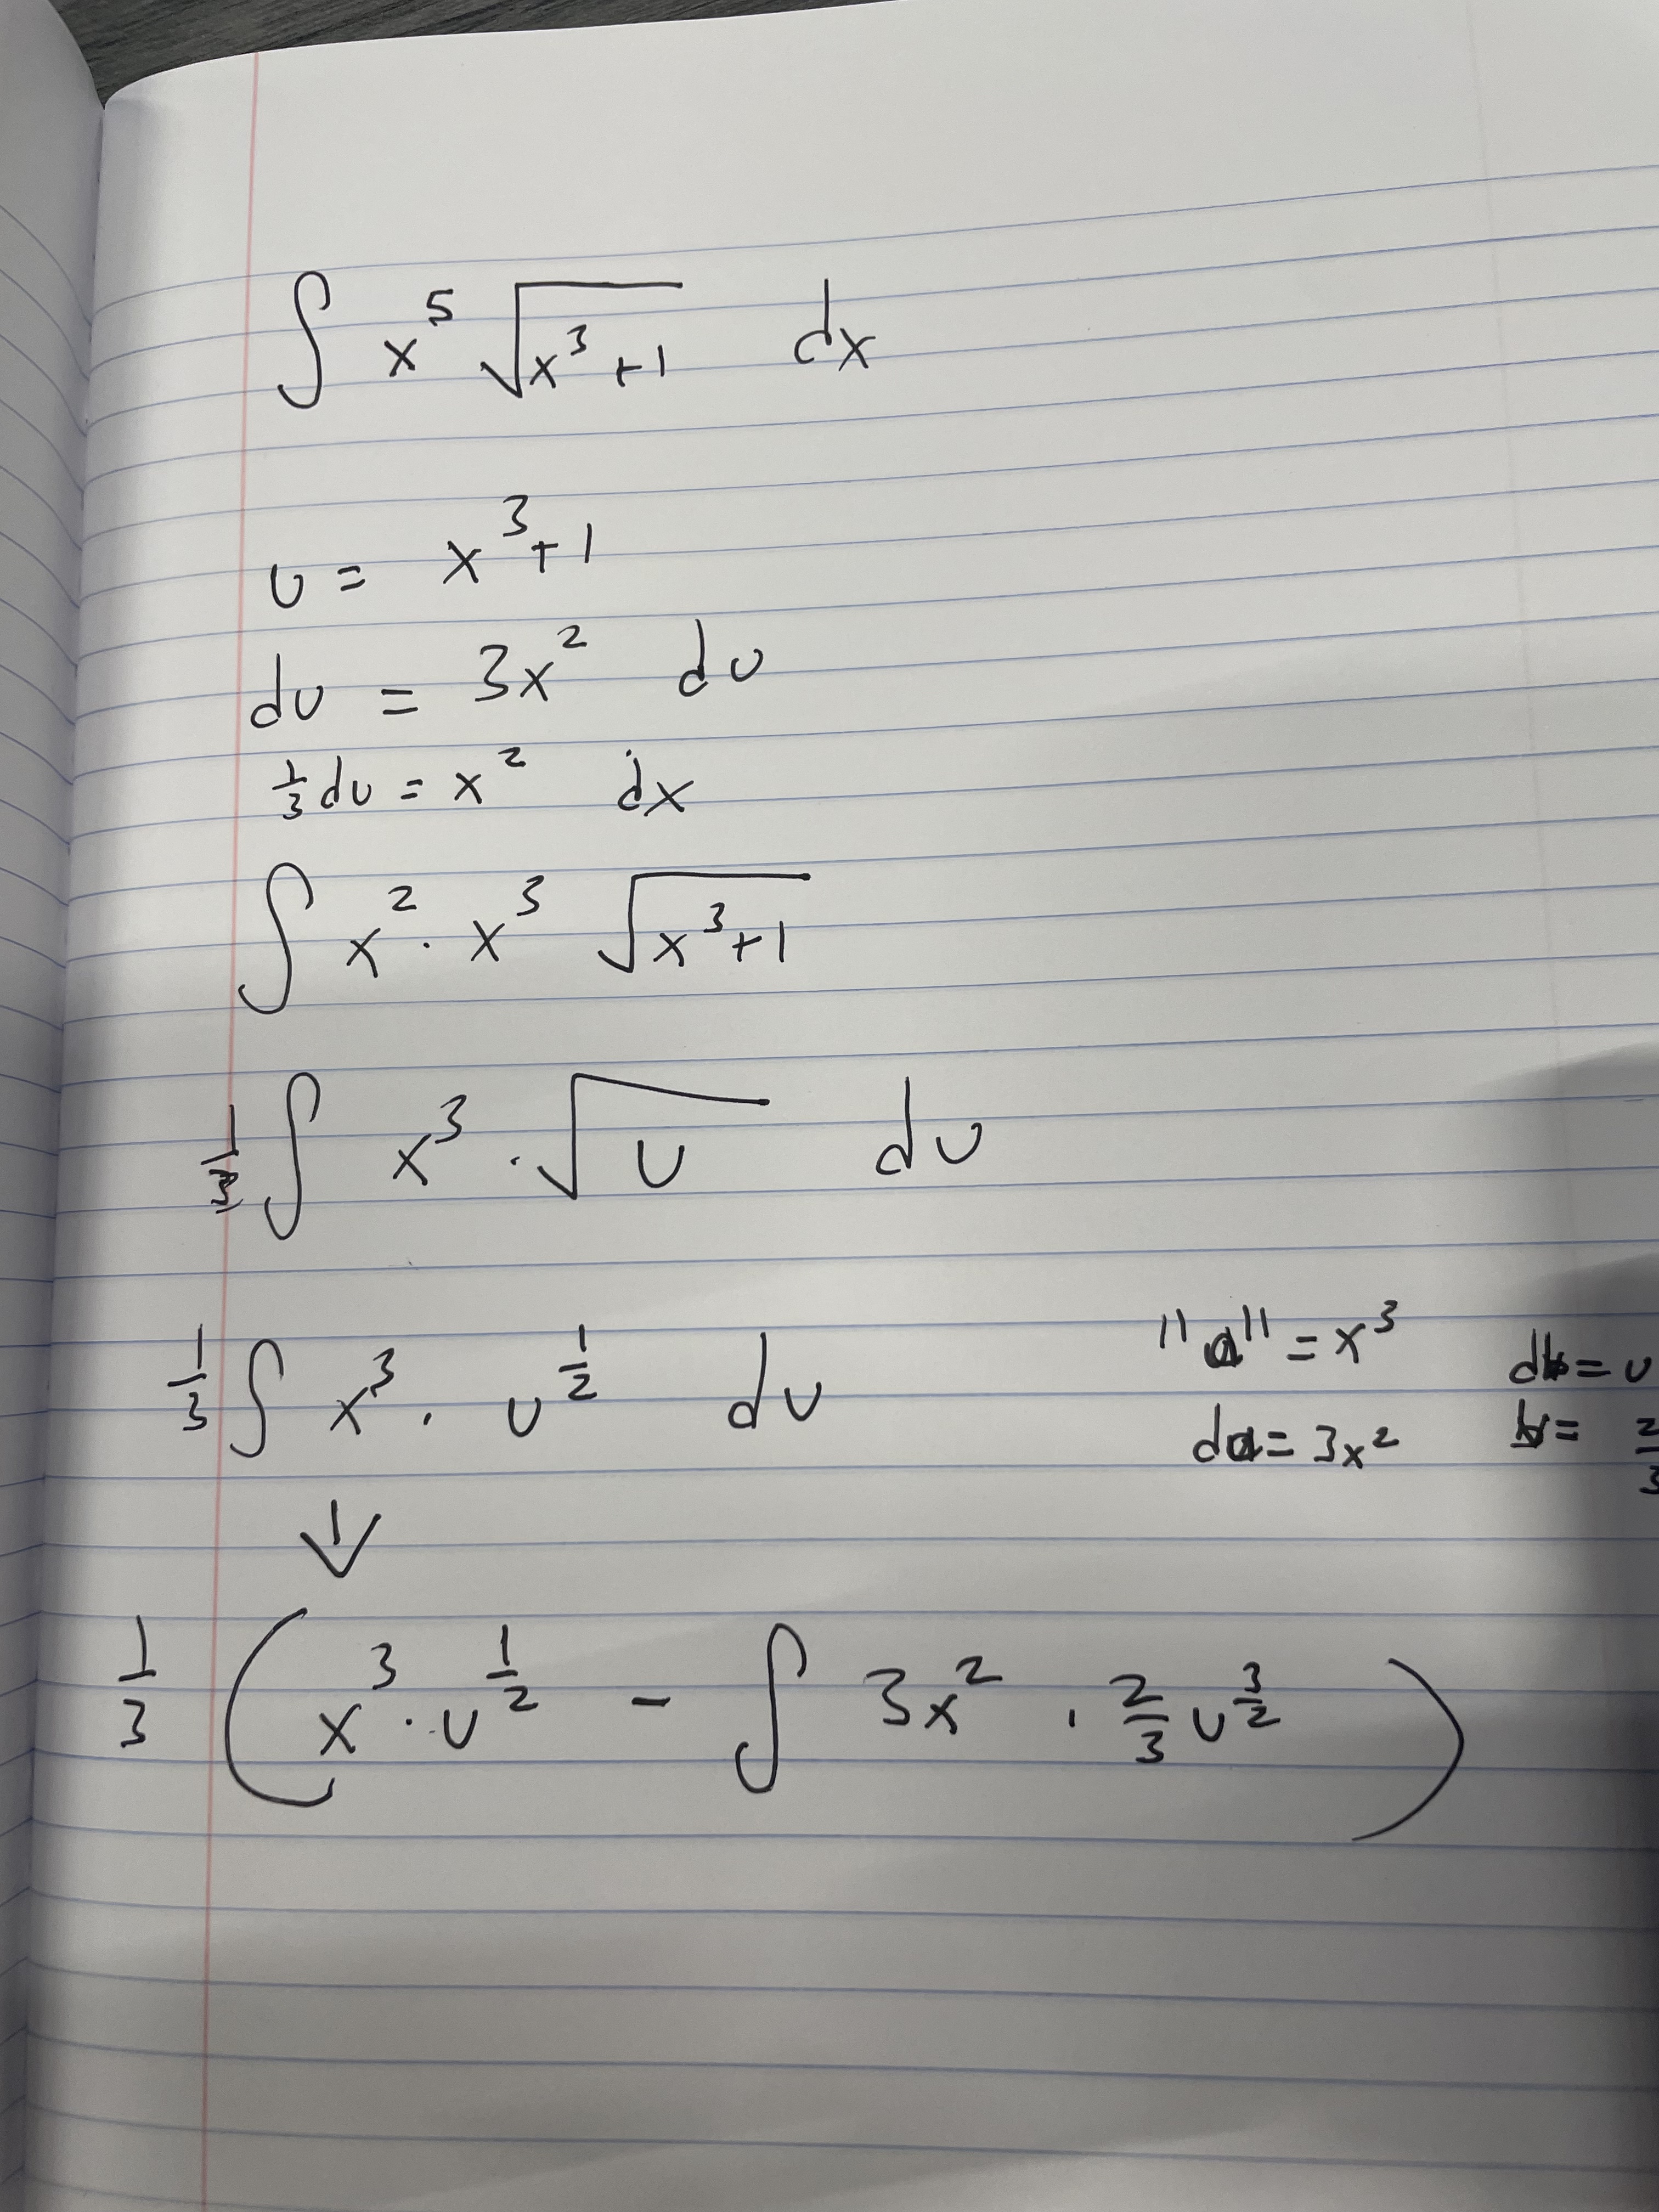 ∫ x⁵ √(x³+1) dx
u = x³+1
du = 3x² du
⅓ du = x² dx
∫ x² · x³ √(x³+1)
1/3 ∫ x³ · √u du
1/3 ∫ x³ · u^(1/2) du "a" = x³ db = u
da = 3x² b = 2/3
↓
1/3 ( x³ · u^(1/2) - ∫ 3x² · 2/3 u^(3/2) )